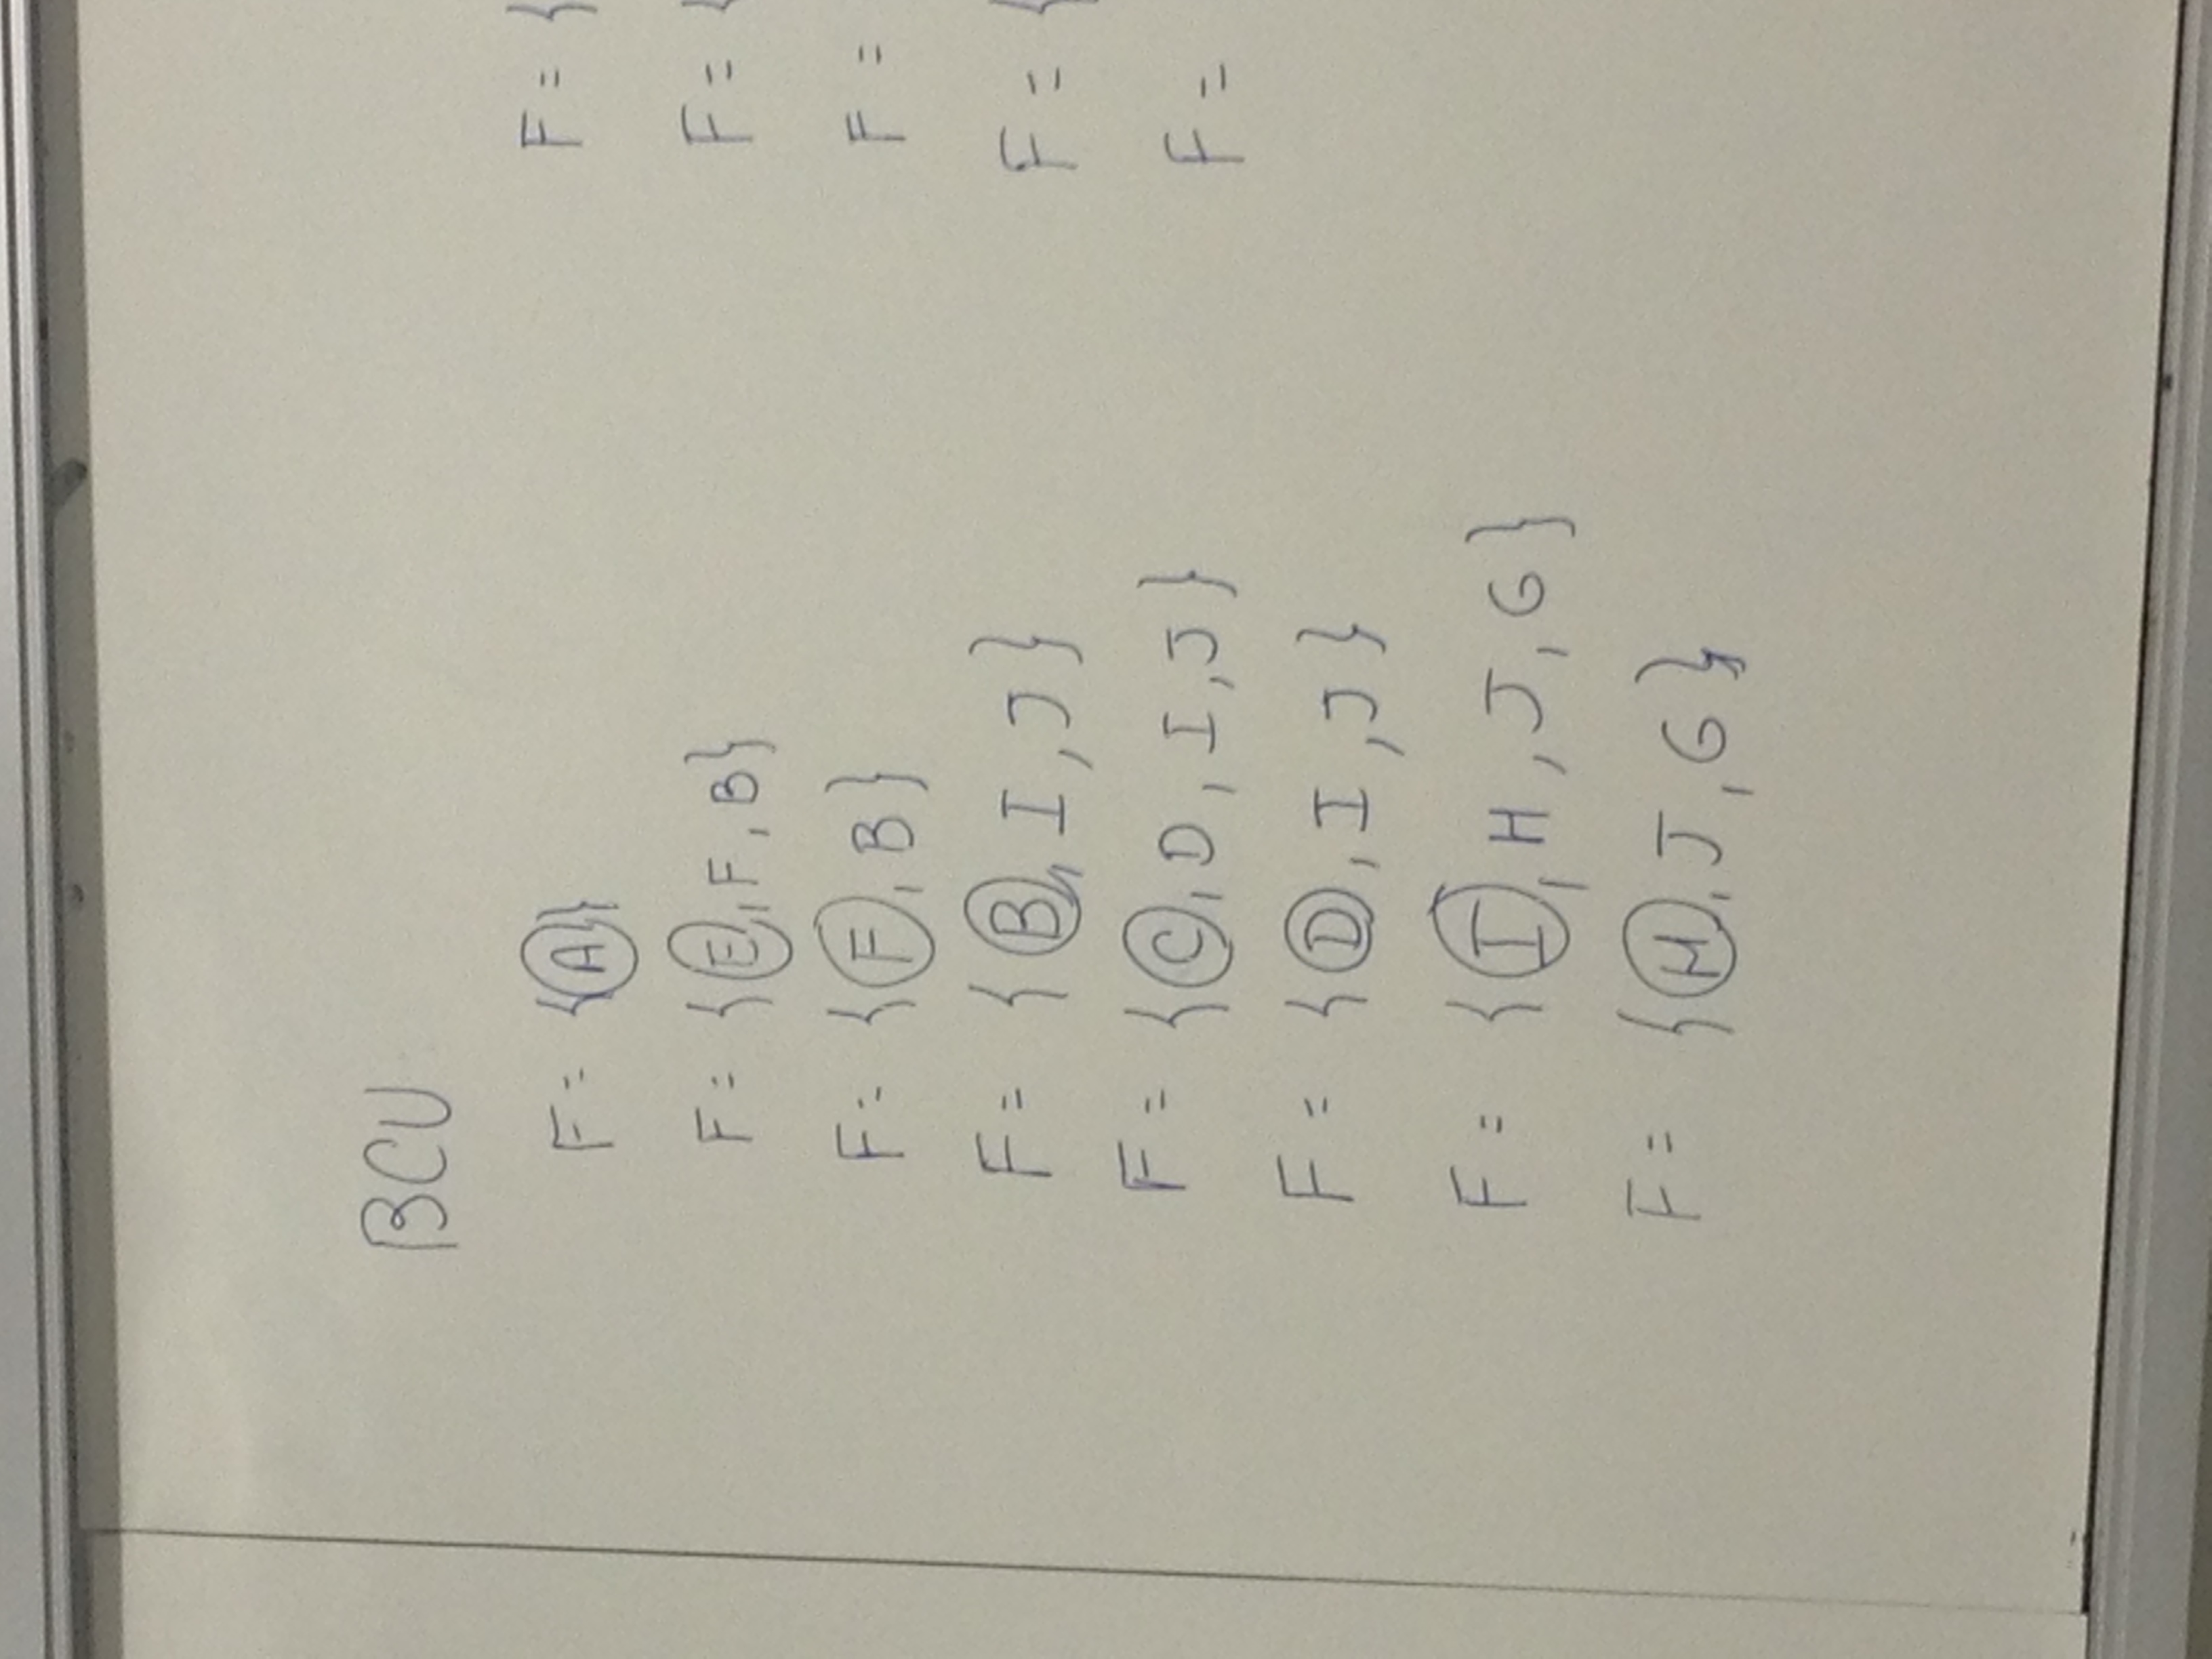 BCU
F = {A}
F = {E, F, B}
F = {F, B}
F = {B, I, J}
F = {C, D, I, J}
F = {D, I, J}
F = {I, H, J, G}
F = {H, J, G}
F = {
F = {
F =
F = {
F =